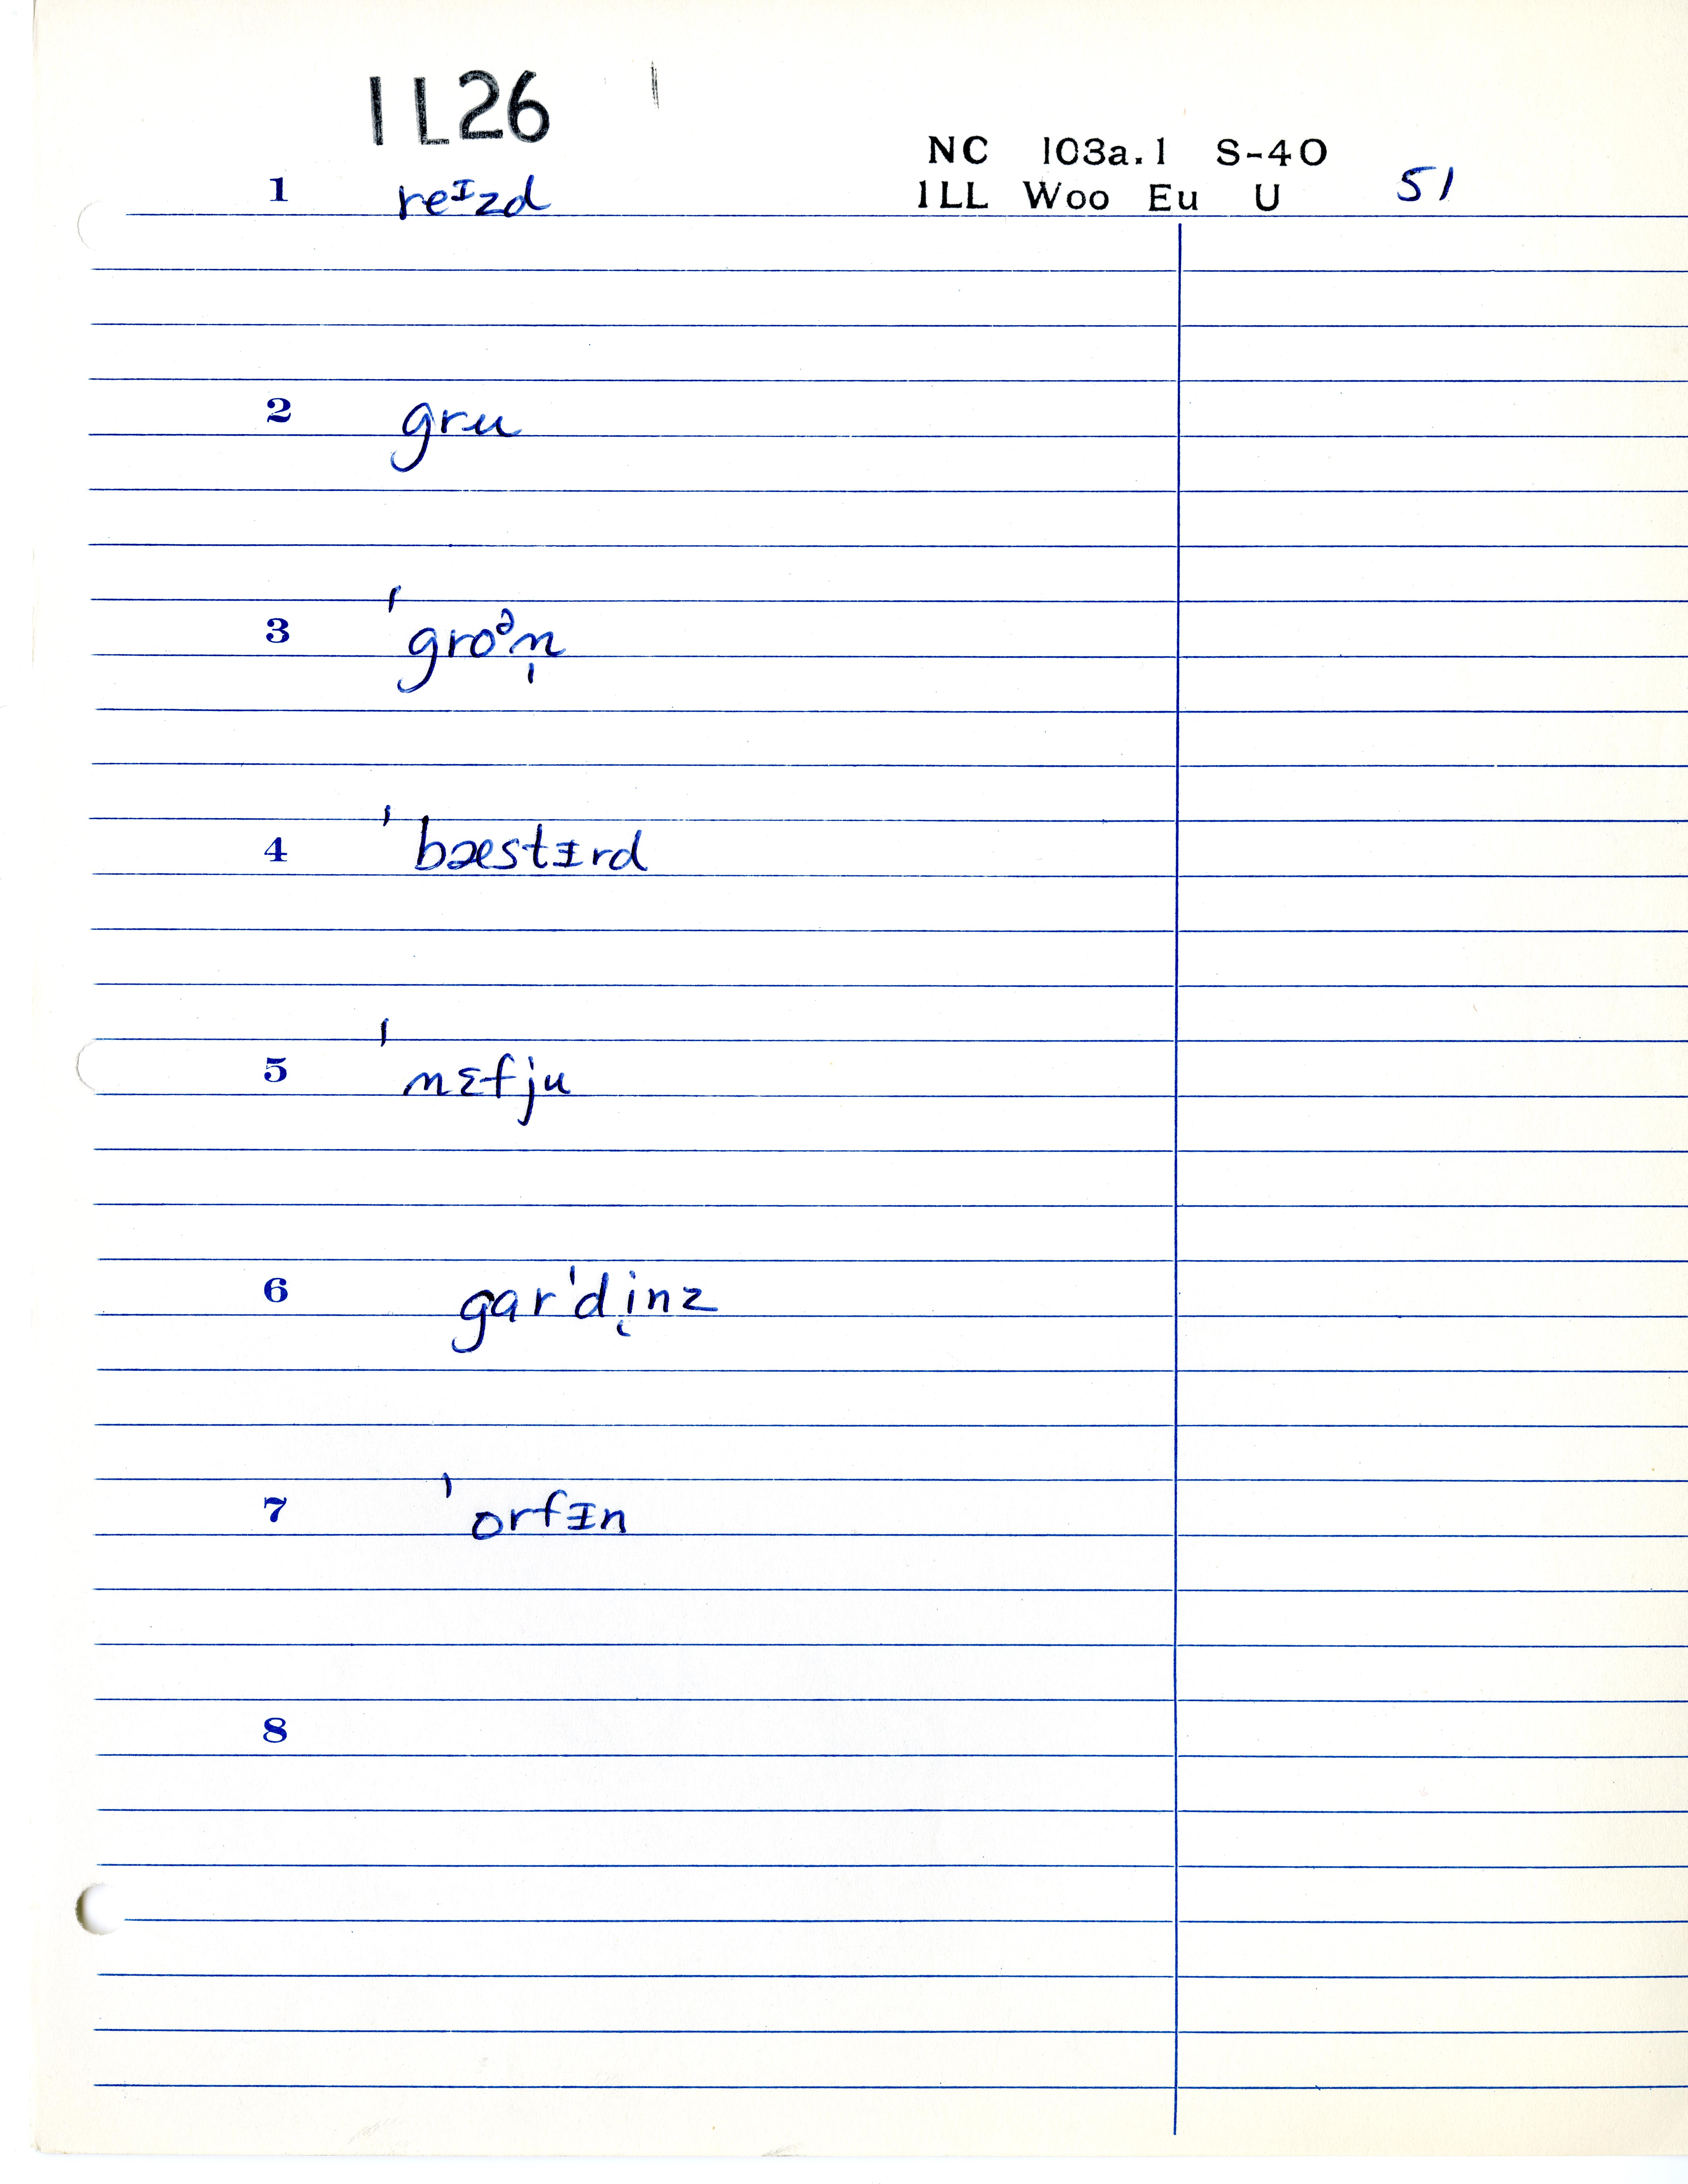 IL26
NC 103a.1 S-40
ILL Woo Eu U 51
1 reᶦzd
2 gru
3 ˈgroᵊn̩
4 ˈbæstᵻrd
5 ˈnɛfju
6 garˈdi̜nz
7 ˈorfᵻn
8